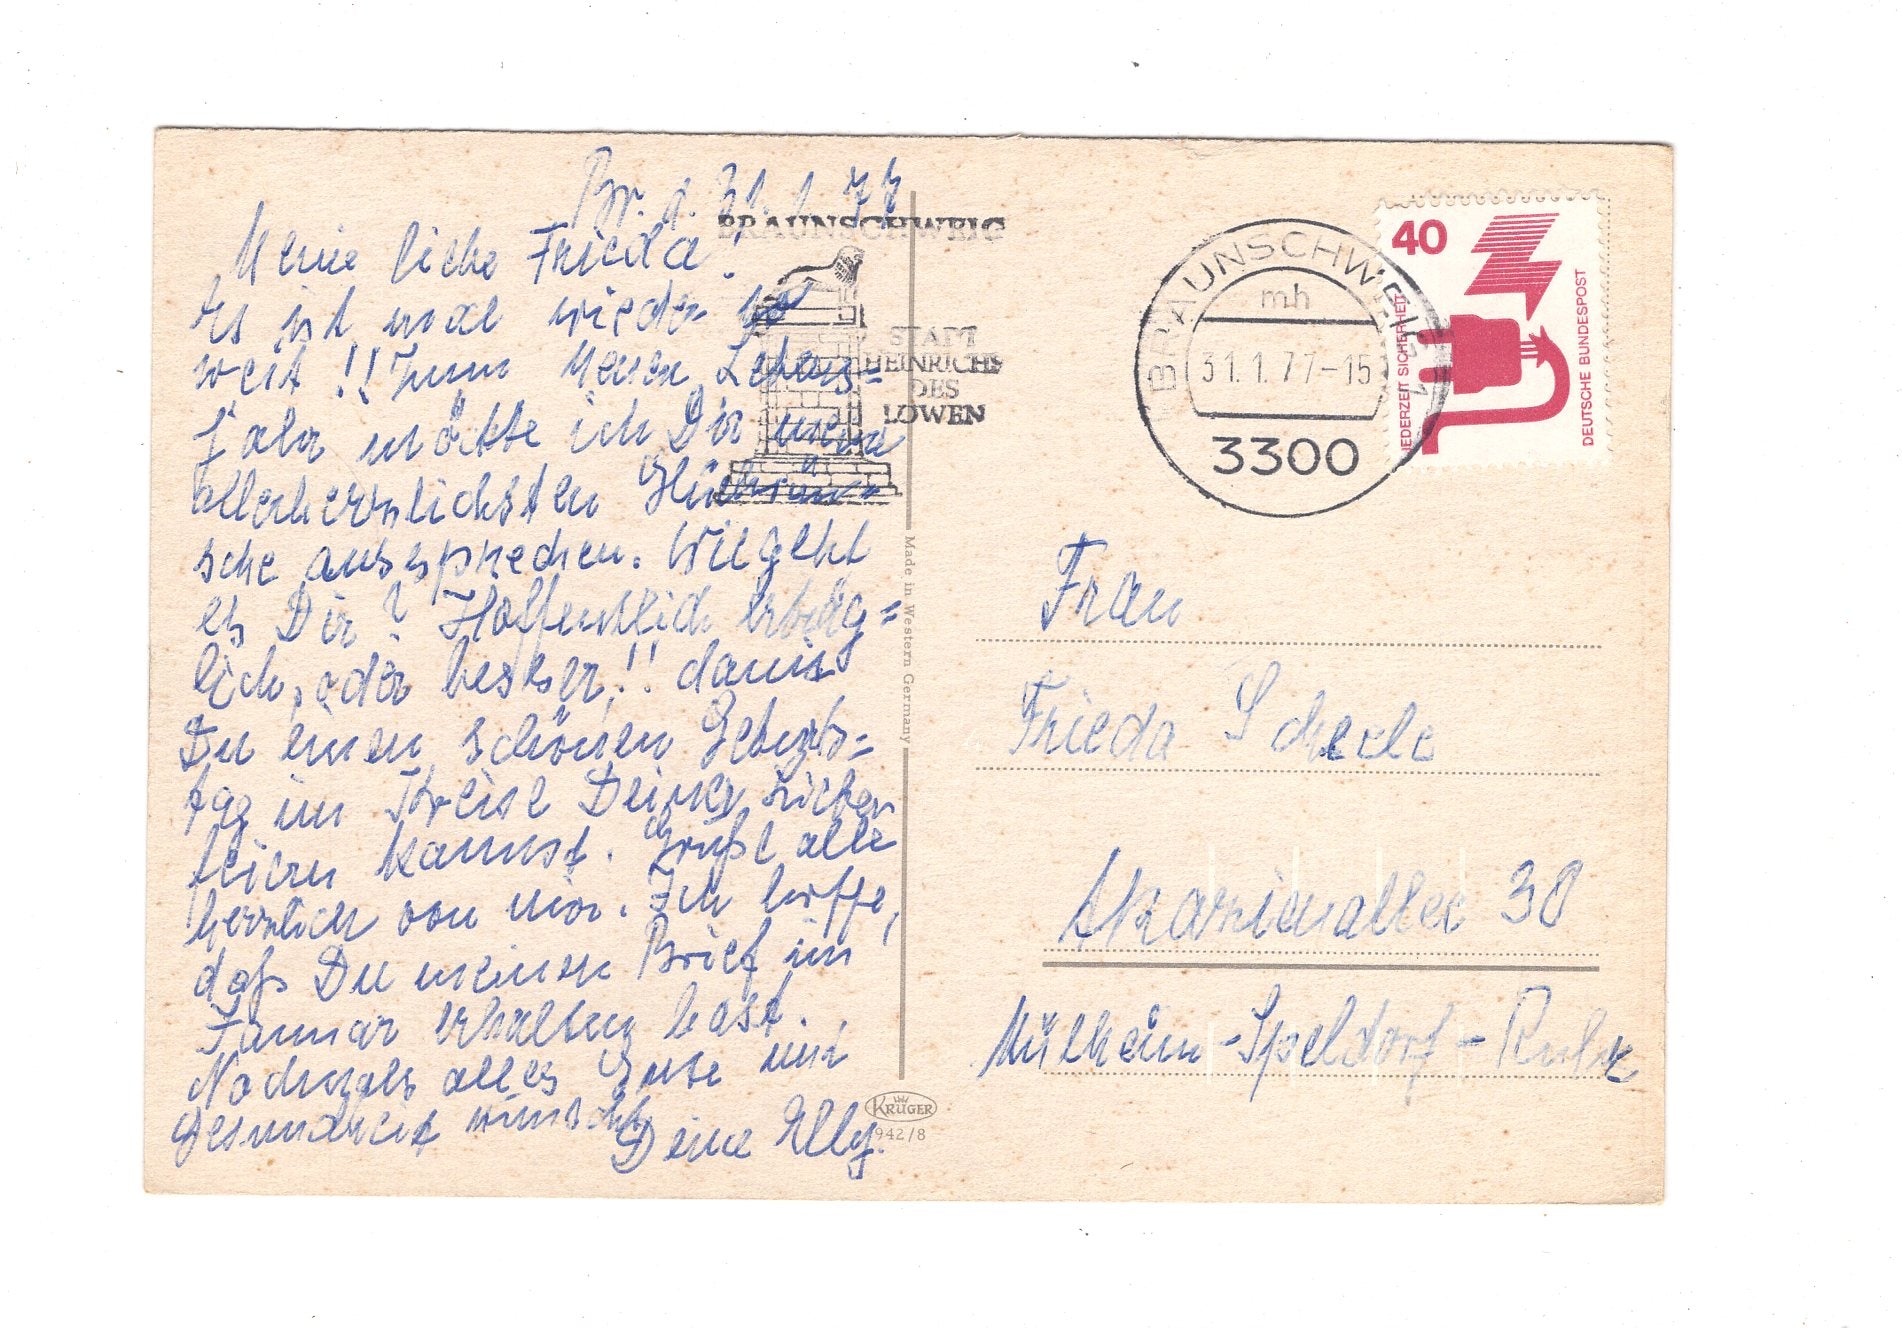 Br. d. 31. 1. 77
Meine liebe Frieda!
Es ist mal wieder so
weit!! Zum Neuen Lebens=
jahr möchte ich Dir meine
allerherzlichsten Glückwün=
sche aussprechen. Wie geht
es Dir? Hoffentlich erträg=
lich, oder besser!! damit
Du einen schönen Geburts=
tag im Kreise Deiner Lieben
feiern kannst. Grüße alle
herzlich von mir. Ich hoffe,
daß Du meinen Brief im
Januar erhalten hast.
Nochmals alles Gute und
Gesundheit wünscht
Deine Elly.
BRAUNSCHWEIG
STADT
HEINRICHS
DES
LÖWEN
Made in Western Germany
KRÜGER
942/8
BRAUNSCHWEIG 1
mh
31.1.77-15
3300
40
JEDERZEIT SICHERHEIT
DEUTSCHE BUNDESPOST
Frau
Frieda Scheele
Akazienallee 30
Mülheim-Speldorf-Ruhr